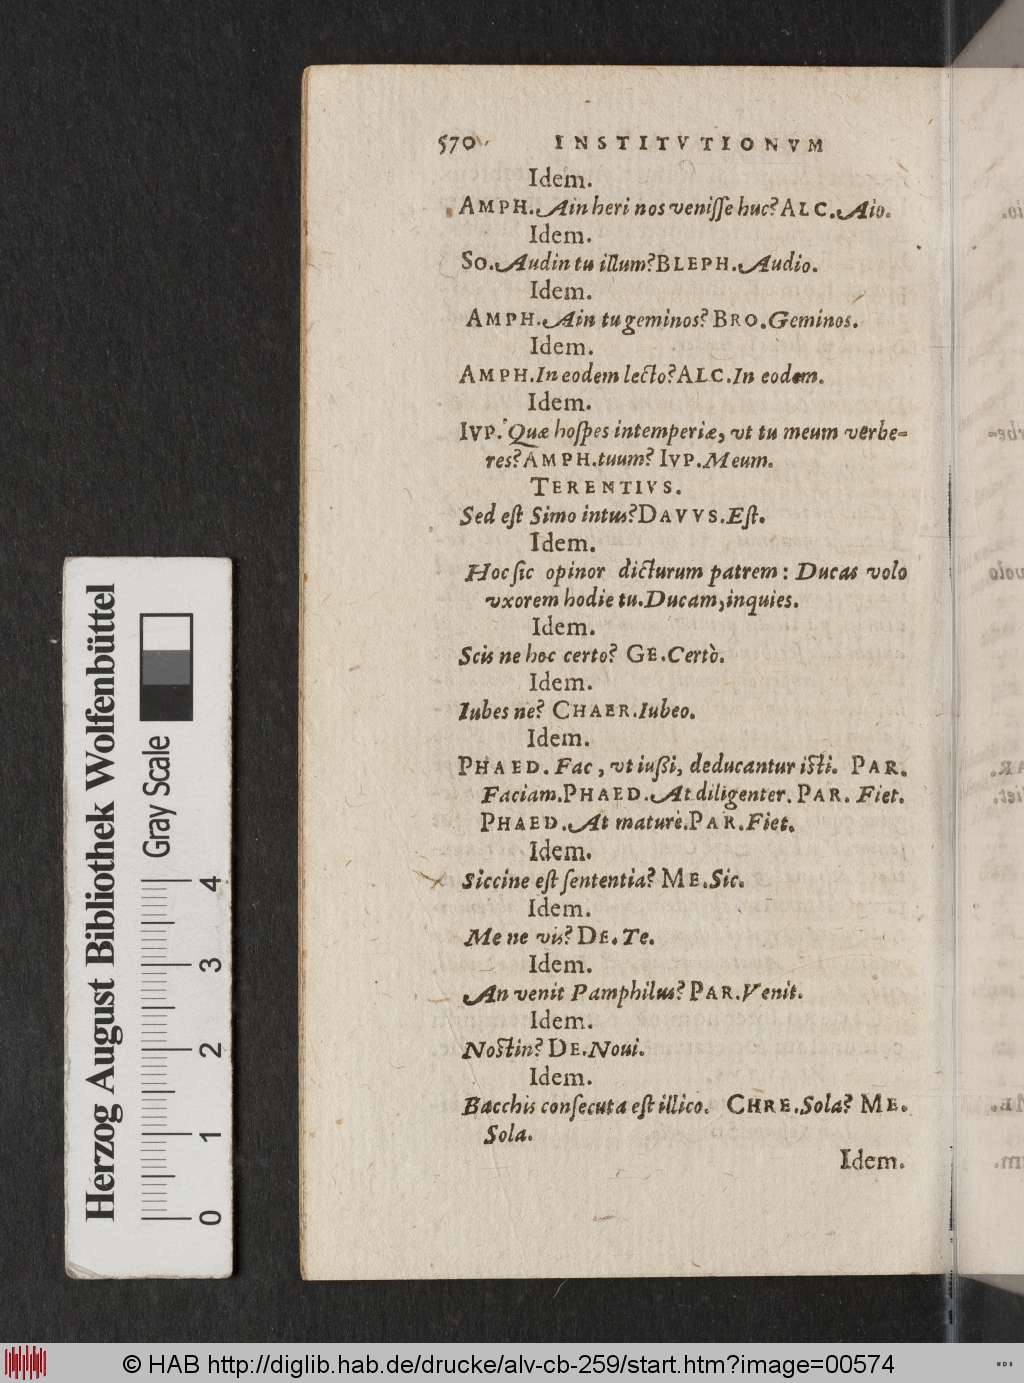 570 INSTITVTIONVM
Idem.
AMPH. Ain heri nos venisse huc? ALC. Aio.
Idem.
SO. Audin tu illum? BLEPH. Audio.
Idem.
AMPH. Ain tu geminos? BRO. Geminos.
Idem.
AMPH. In eodem lecto? ALC. In eodem.
Idem.
IVP. Quæ hospes intemperiæ, vt tu meum verbe-
res? AMPH. tuum? IVP. Meum.
TERENTIVS.
Sed est Simo intus? DAVVS. Est.
Idem.
Hoc sic opinor dicturum patrem: Ducas volo
vxorem hodie tu. Ducam, inquies.
Idem.
Scis ne hoc certo? GE. Certò.
Idem.
Iubes ne? CHAER. Iubeo.
Idem.
PHAED. Fac, vt iußi, deducantur isti. PAR.
Faciam. PHAED. At diligenter. PAR. Fiet.
PHAED. At maturè. PAR. Fiet.
Idem.
Siccine est sententia? ME. Sic.
Idem.
Me ne vis? DE. Te.
Idem.
An venit Pamphilus? PAR. Venit.
Idem.
Nostin? DE. Noui.
Idem.
Bacchis consecuta est illico. CHRE. Sola? ME.
Sola.
Idem.
Herzog August Bibliothek Wolfenbüttel
Gray Scale
0 1 2 3 4
© HAB http://diglib.hab.de/drucke/alv-cb-259/start.htm?image=00574